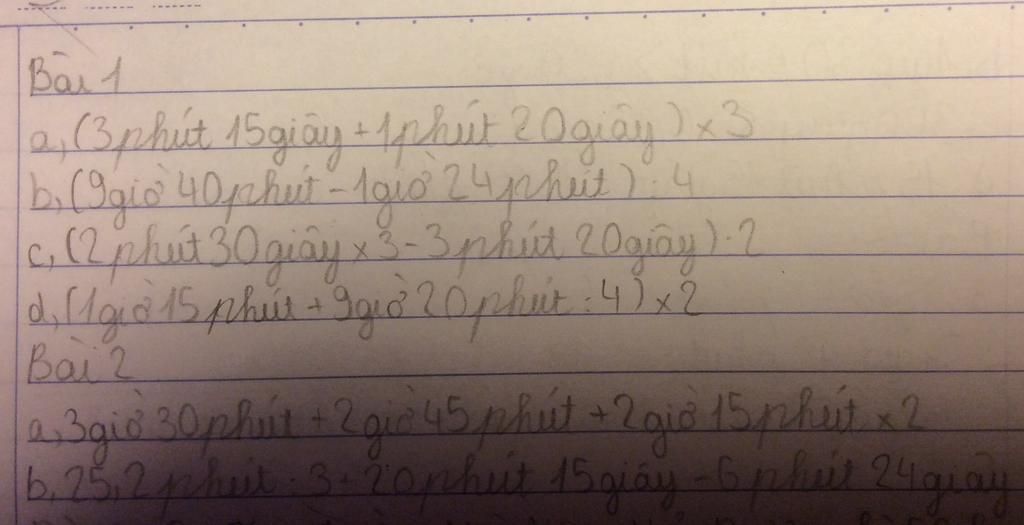 Bài 1
a, (3phút 15giây + 1phút 20giây) x 3
b, (9giờ 40phút - 1giờ 24phút) : 4
c, (2phút 30giây x 3 - 3phút 20giây) : 2
d, (1giờ 15phút + 9giờ 20phút : 4) x 2
Bài 2
a, 3giờ 30phút + 2giờ 45phút + 2giờ 15phút x 2
b, 25,2phút : 3 + 20phút 15giây - 6phút 24giây